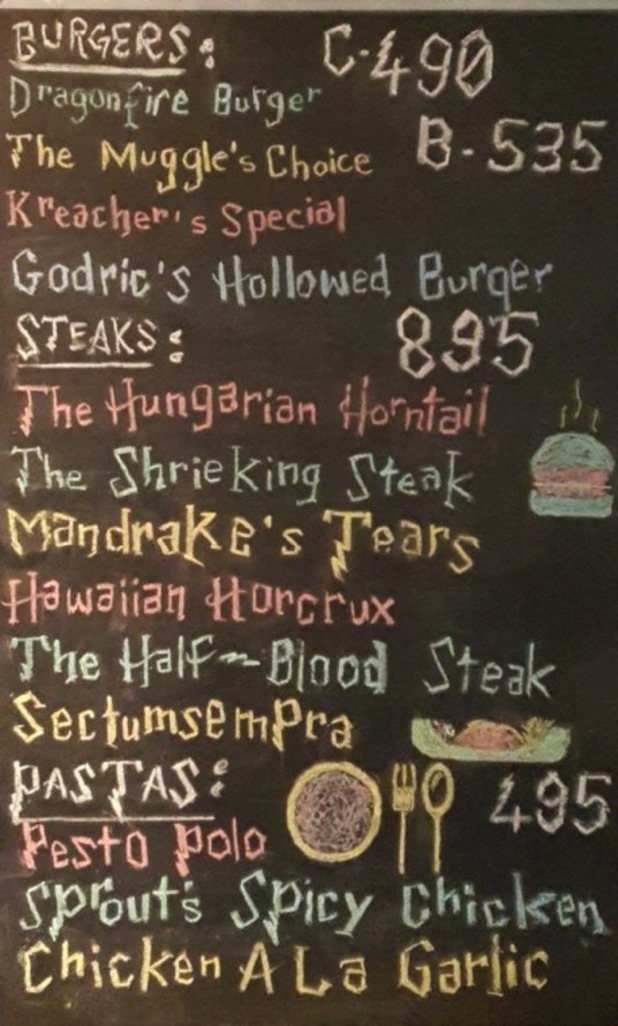 BURGERS: C-490
Dragonfire Burger
The Muggle's Choice B-535
Kreacher's Special
Godric's Hollowed Burger
STEAKS: 895
The Hungarian Horntail
The Shrieking Steak
Mandrake's Tears
Hawaiian Horcrux
The Half-Blood Steak
Sectumsempra
PASTAS: 495
Pesto Polo
Sprout's Spicy Chicken
Chicken A La Garlic